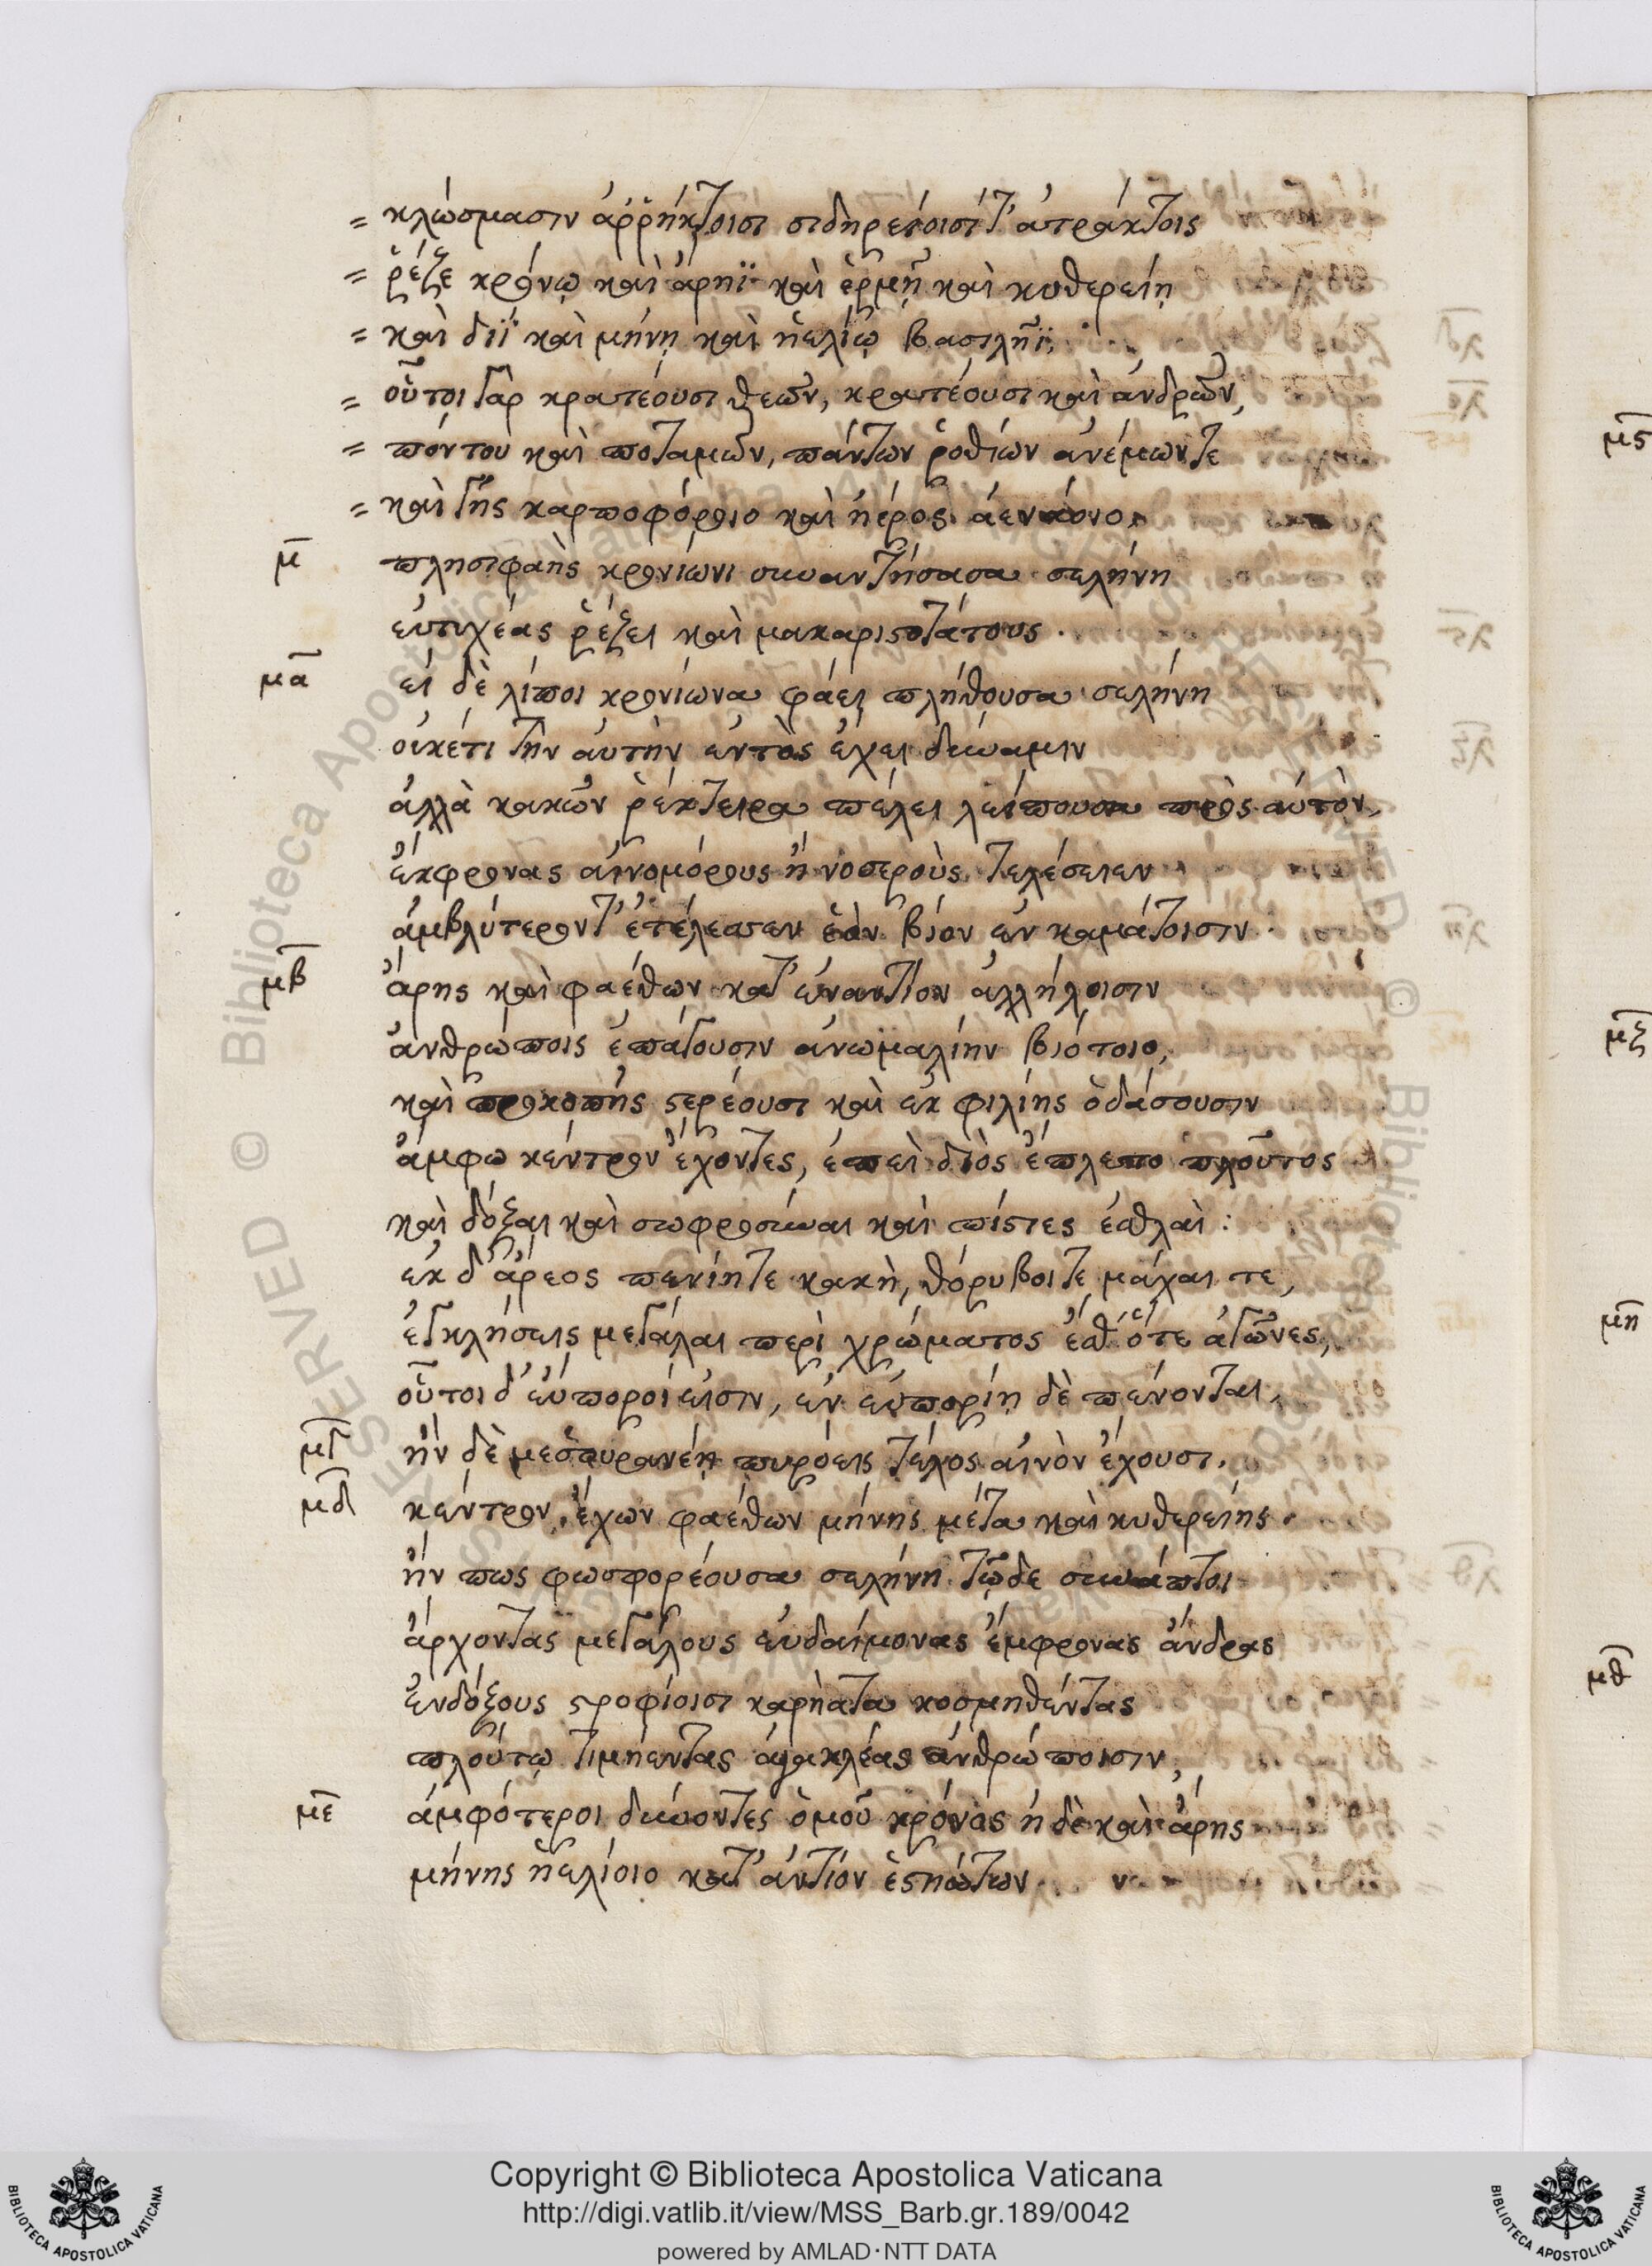 = κλώσμασιν ἀῤῥήκτοισι σιδηρείοισί τ' ἀτράκτοις
= ῥέζε κρόνῳ καὶ ἄρηϊ καὶ ἑρμῇ καὶ κυθερείῃ
= καὶ διῒ καὶ μήνῃ καὶ ἠελίῳ βασιλῆϊ·
= οὗτοι γὰρ κρατέουσι θεῶν, κρατέουσι καὶ ἀνδρῶν,
= πόντου καὶ ποταμῶν, πάντων ῥοθίων ἀνέμων τε
= καὶ γῆς καρποφόροιο καὶ ἠέρος ἀενάοιο
μ πλησιφαὴς κρονίωνι συναντήσασα σελήνη
εὐτυχέας ῥέξει καὶ μακαριστοτάτους.
μα εἰ δὲ λίποι κρονίωνα φάει πλήθουσα σελήνη
οὐκέτι τὴν αὐτὴν ἐντὸς ἔχει δύναμιν
ἀλλὰ κακῶν ῥέκτειρα πέλει λείπουσα πρὸς αὐτὸν,
ἔκφρονας αἰνομόρους ἢ νοσεροὺς τελέσειεν
ἀμβλύτερόν τ' ἐτέλεσσεν ἑὸν βίον ἐν καμάτοισιν
μβ ἄρης καὶ φαέθων κατ' ἐναντίον ἀλλήλοισιν
ἀνθρώποις ἐπάγουσιν ἀνωμαλίην βιότοιο,
καὶ προκοπῆς στερέουσι καὶ ἐκ φιλίης ὀδάσουσιν
ἄμφω κέντρον ἔχοντες, ἐπεὶ διὸς ἔπλετο πλοῦτος
καὶ δόξαι καὶ σωφροσύναι καὶ πίστες ἐσθλαί:
ἐκ δ' ἄρεος πενίη τε κακὴ, θόρυβοί τε μάχαι τε,
ἐγκλήσεις μεγάλαι περὶ χρώματος ἔσθ' ὅτε ἀγῶνες,
οὗτοι δ' εὔποροί εἰσιν, ἐν εὐπορίῃ δὲ πένονται,
μγ ἢν δὲ μεσουρανέῃ πυρόεις τέλος αἰνὸν ἔχουσι.
μδ κέντρον ἔχων φαέθων μήνης μέτα καὶ κυθερείης
ἤν πως φωσφορέουσα σελήνη τῷδε συνάπτοι
ἄρχοντας μεγάλους εὐδαίμονας ἔμφρονας ἄνδρας
ἐνδόξους στροφίοισι καρήατα κοσμηθέντας
πλούτῳ τιμήεντας ἀγακλέας ἀνθρώποισιν,
με ἀμφότεροι δύνοντες ὁμοῦ κρόνος ἠδὲ καὶ ἄρης
μήνης ἠελίοιο κατ' ἀντίον ἑστηώτων
μς
μζ
μη
μθ
Copyright © Biblioteca Apostolica Vaticana
http://digi.vatlib.it/view/MSS_Barb.gr.189/0042
powered by AMLAD·NTT DATA